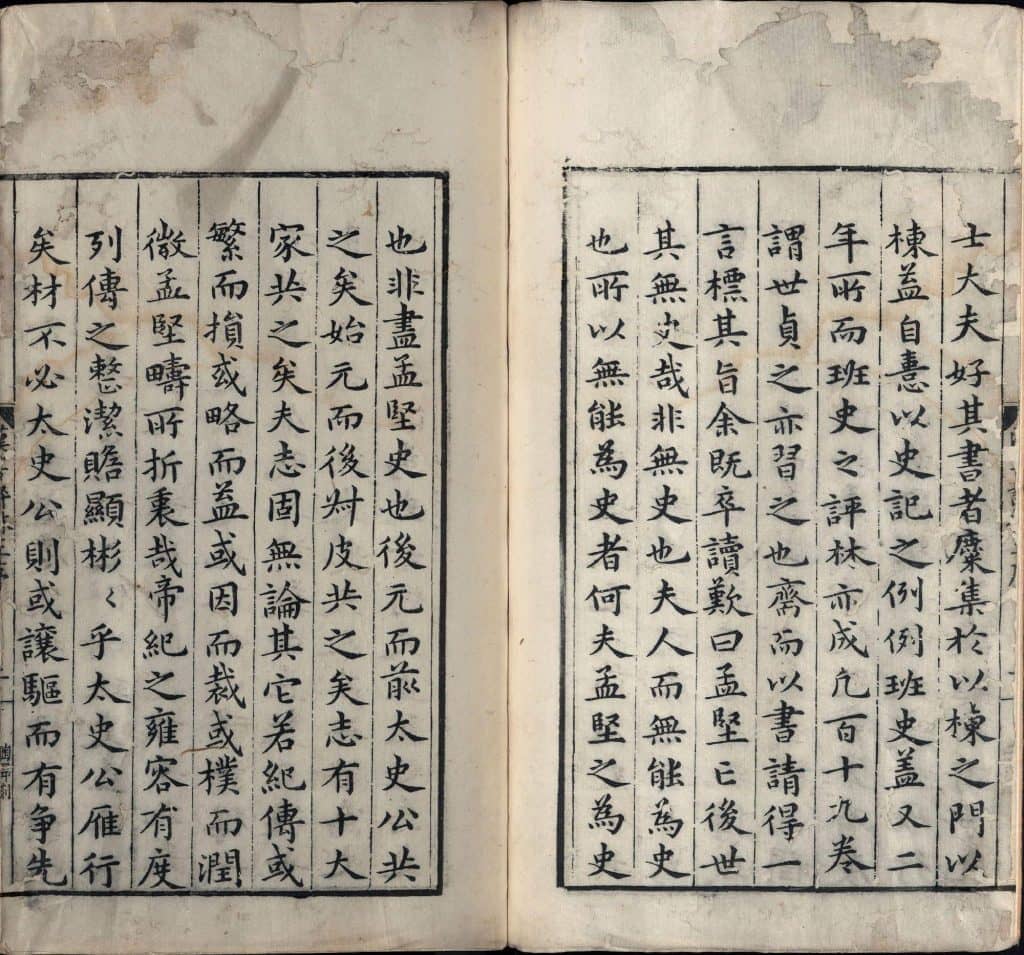 士大夫好其書者麋集於以棟之門以
棟益自憙以史記之例例班史蓋又二
年所而班史之評林亦成凢百十九卷
謂世貞之亦習之也齎而以書請得一
言標其旨余既卒讀歎曰孟堅已後世
其無史哉非無史也夫人而無能為史
也所以無能為史者何夫孟堅之為史
也非盡孟堅史也後元而前太史公共
之矣始元而後叔皮共之矣志有十大
家共之矣夫志固無論其它若紀傳或
繁而損或略而益或因而裁或樸而潤
微孟堅疇所折衷哉帝紀之雍容有度
列傳之整潔贍顯彬〻乎太史公雁行
矣材不必太史公則或讓驅而有争先